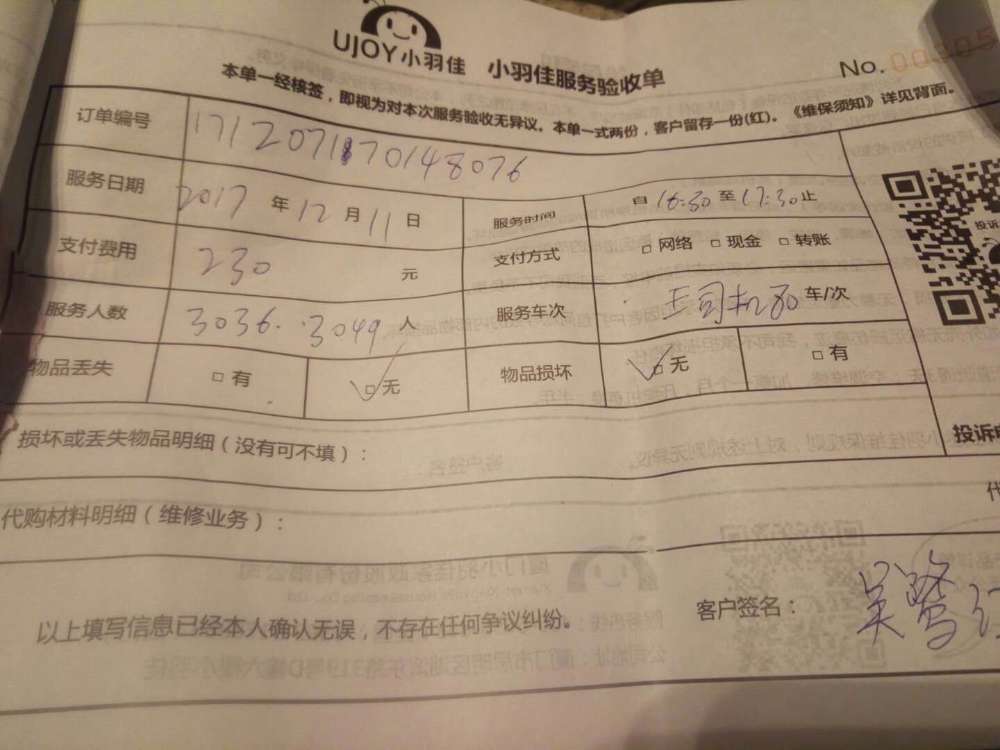 UJOY小羽佳 小羽佳服务验收单 No. 00305
本单一经核签，即视为对本次服务验收无异议。本单一式两份，客户留存一份(红)。《维保须知》详见背面。
订单编号 171207170148076
服务日期 2017年12月11日 服务时间 自16:30至17:30止
支付费用 230元 支付方式 □网络 □现金 □转账
服务人数 3036. 3049人 服务车次 车/次
物品丢失 □有 □无 物品损坏 □无 □有
投诉
损坏或丢失物品明细（没有可不填）： 投诉
代购材料明细（维修业务）： 代
以上填写信息已经本人确认无误，不存在任何争议纠纷。 客户签名： 吴鹭